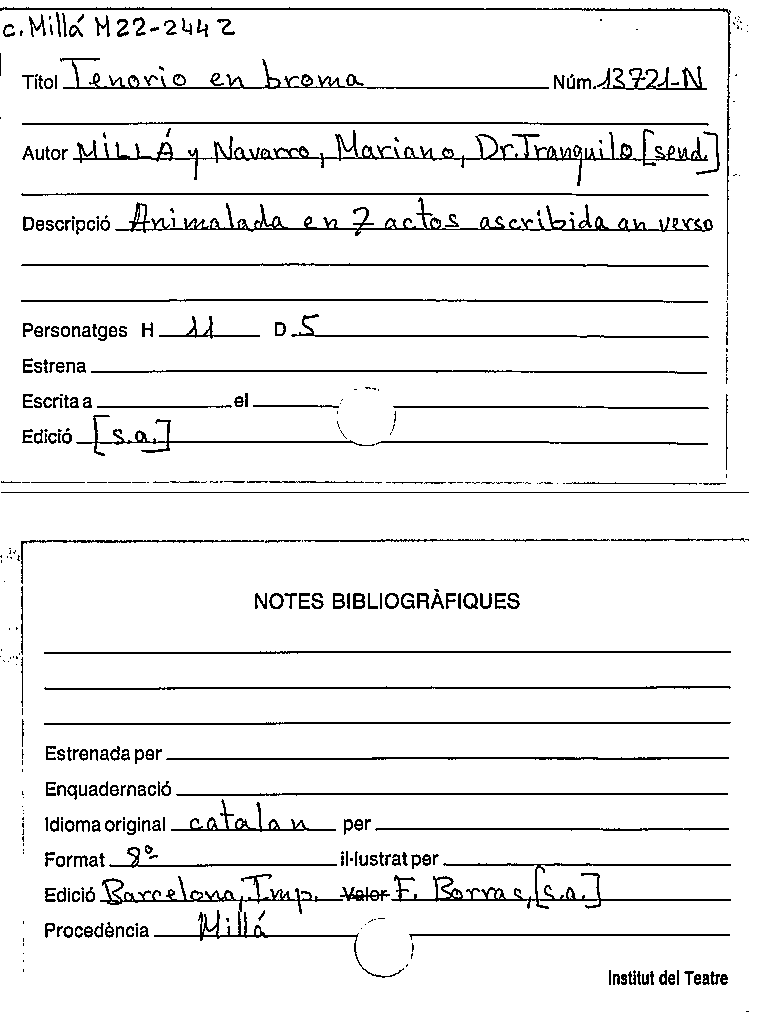 c. Millá M22-2442
Títol Tenorio en broma Núm. 13721-N
Autor MiLLÁ y Navarro, Mariano, Dr. Tranquilo [seud.]
Descripció Animalada en 7 actos ascribida an verso
Personatges H 11 D. 5
Estrena
Escrita a el
Edició [s.a.]
NOTES BIBLIOGRÀFIQUES
Estrenada per
Enquadernació
Idioma original catalan per
Format 8º il·lustrat per
Edició Barcelona, Imp. Valor F. Borras, [s.a.]
Procedència Millá
Institut del Teatre